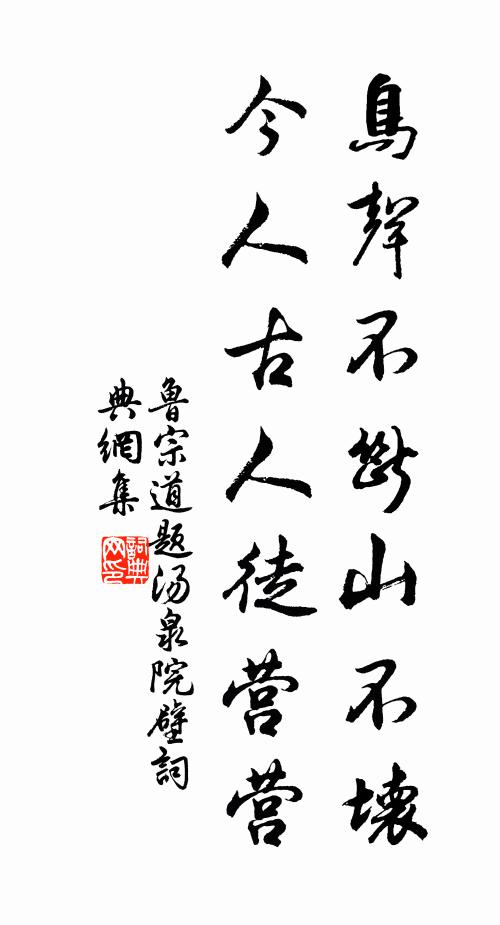 鳥聲不斷山不壞
今人古人徒营营
魯宗道題湯泉院壁詞
典網集
詞典网印